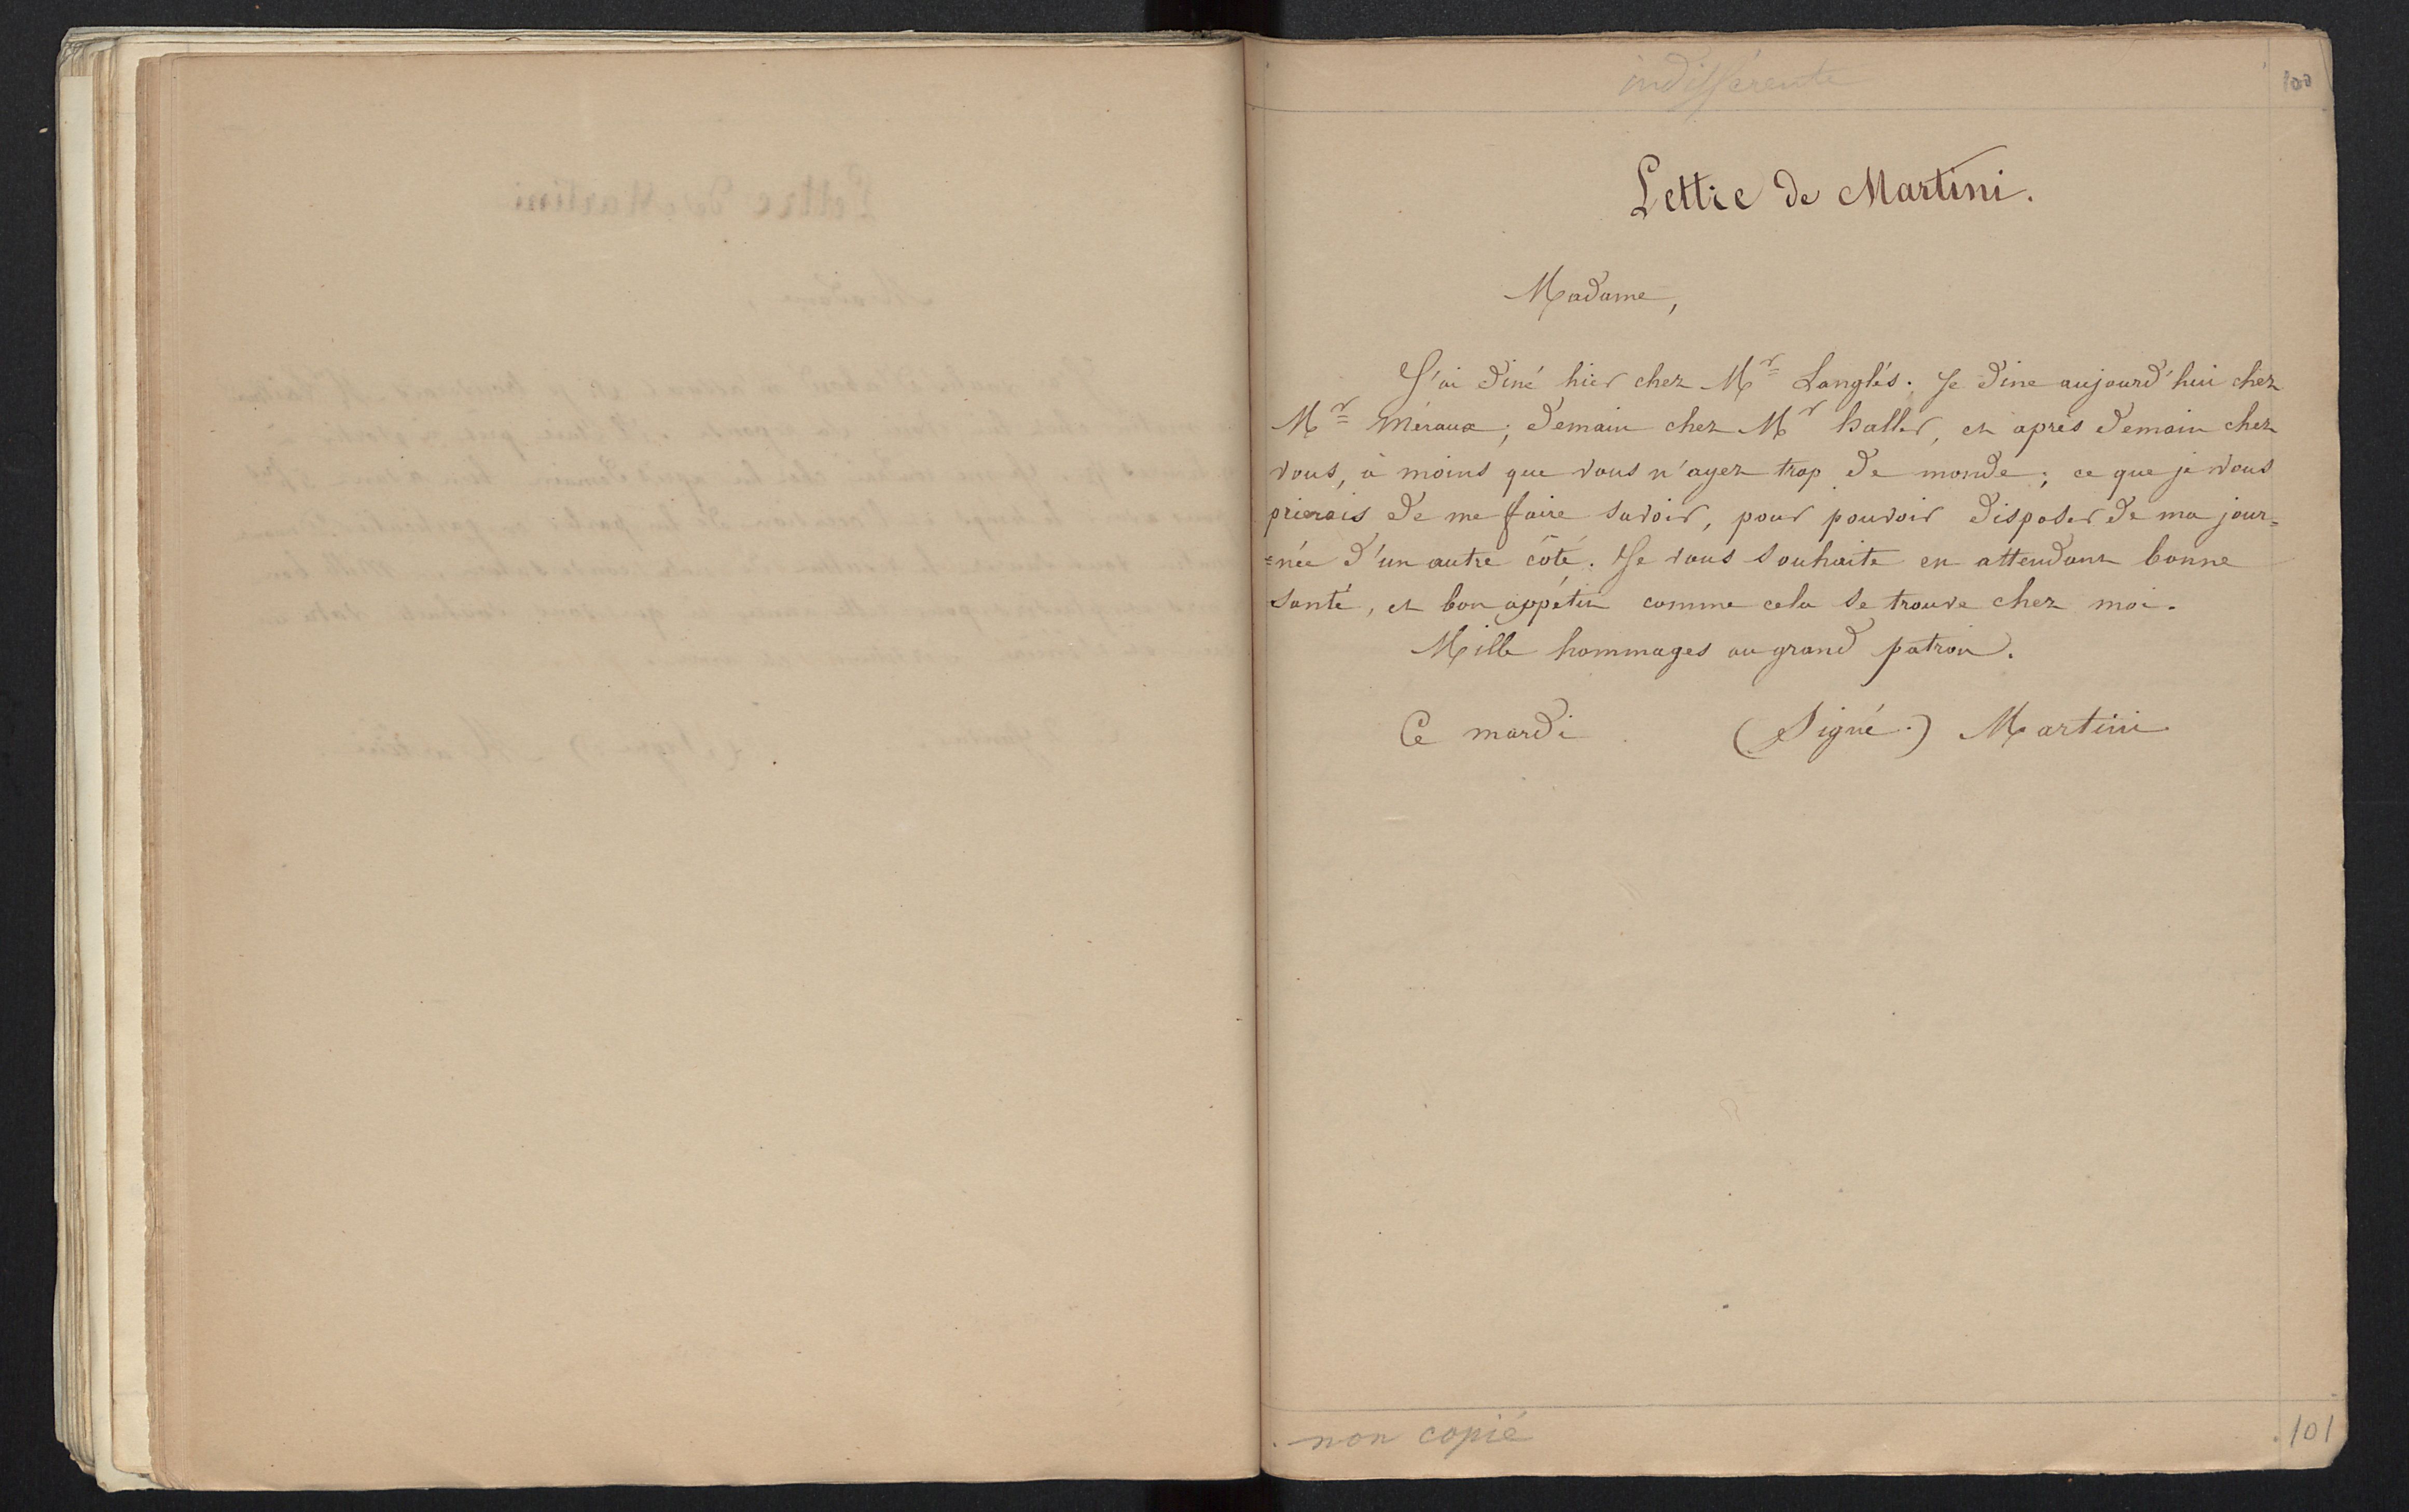 indifférente
100
Lettre de Martini.
Madame,
J'ai diné hier chez Mr Langlés. Je dine aujourd'hui chez
Mr Méraux; demain chez Mr haller, et aprés demain chez
vous, à moins que vous n'ayez trop de monde; ce que je vous
prierais de me faire savoir, pour pouvoir disposer de ma jour=
=née d'un autre côté. Je vous souhaite en attendant bonne
santé, et bon appétit comme cela se trouve chez moi.
Mille hommages au grand patron.
Ce mardi (Signé.) Martini
non copié
101